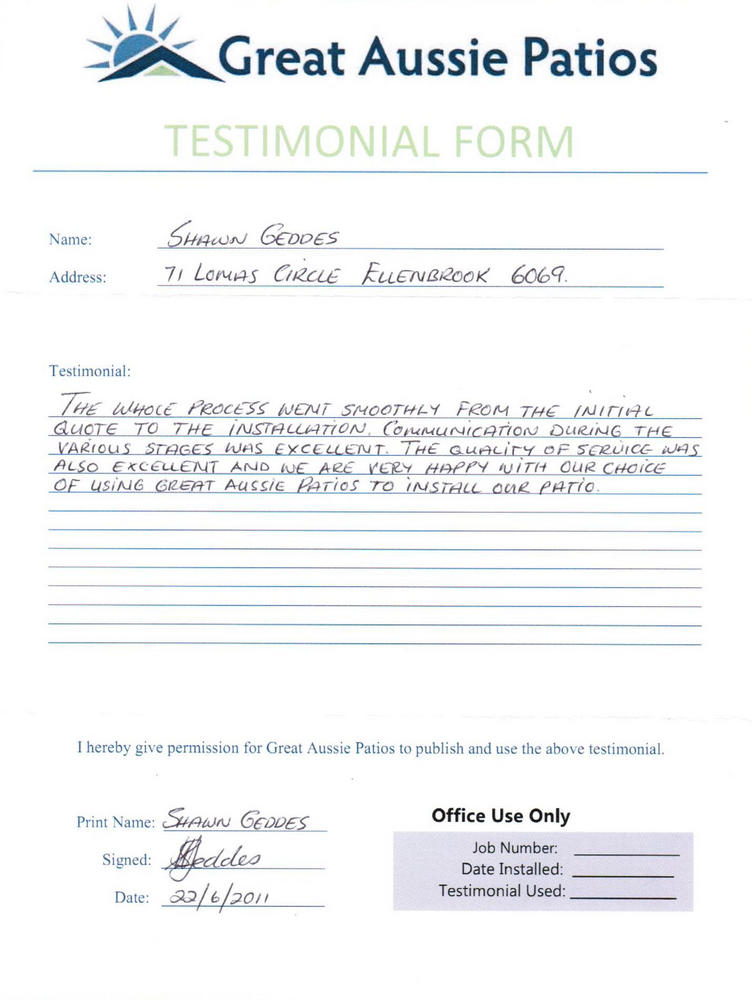 Great Aussie Patios
TESTIMONIAL FORM
Name: SHAWN GEDDES
Address: 71 LOMAS CIRCLE ELLENBROOK 6069.
Testimonial:
THE WHOLE PROCESS WENT SMOOTHLY FROM THE INITIAL
QUOTE TO THE INSTALLATION. COMMUNICATION DURING THE
VARIOUS STAGES WAS EXCELLENT. THE QUALITY OF SERVICE WAS
ALSO EXCELLENT AND WE ARE VERY HAPPY WITH OUR CHOICE
OF USING GREAT AUSSIE PATIOS TO INSTALL OUR PATIO.
I hereby give permission for Great Aussie Patios to publish and use the above testimonial.
Print Name: SHAWN GEDDES
Signed: SGeddes
Date: 22/6/2011
Office Use Only
Job Number:
Date Installed:
Testimonial Used: